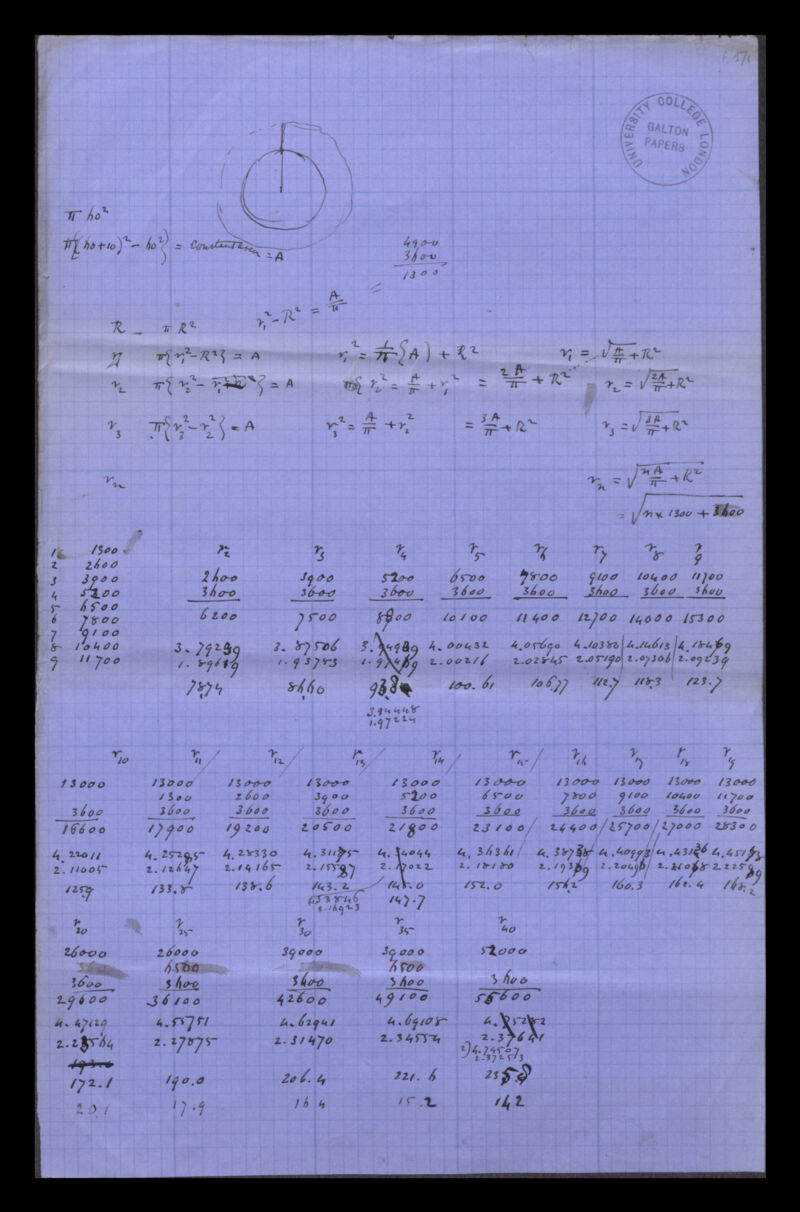 UNIVERSITY COLLEGE LONDON
GALTON
PAPERS
π 60²
π{(60+10)² - 60²} = constant area = A
4900
3600
1300
r₁² - R² = A/π =
R - π R²
r₁ π{r₁² - R²} = A r₁² = 1/π {A} + R² r₁ = √(A/π + R²)
r₂ π{r₂² - r₁²} = A r₂² = A/π + r₁² = 2A/π + R² r₂ = √(2A/π + R²)
r₃ π{r₃² - r₂²} = A r₃² = A/π + r₂² = 3A/π + R² r₃ = √(3A/π + R²)
rₙ rₙ = √(nA/π + R²)
= √(n × 1300 + 3600)
1 1300
2 2600
3 3900
4 5200
5 6500
6 7800
7 9100
8 10400
9 11700
r₂ r₃ r₄ r₅ r₆ r₇ r₈ r₉
2600 3900 5200 6500 7800 9100 10400 11700
3600 3600 3600 3600 3600 3600 3600 3600
6200 7500 8800 10100 11400 12700 14000 15300
3.79239 3.87506 4.00432 4.05690 4.10380 4.14613 4.18469
1.89619 1.93753 2.00216 2.02845 2.05190 2.07306 2.09239
78.74 86.60 93.8 100.61 106.77 112.7 118.3 123.7
3.94448
1.97224
r₁₀ r₁₁ r₁₂ r₁₃ r₁₄ r₁₅ r₁₆ r₁₇ r₁₈ r₁₉
13000 13000 13000 13000 13000 13000 13000 13000 13000 13000
1300 2600 3900 5200 6500 7800 9100 10400 11700
3600 3600 3600 3600 3600 3600 3600 3600 3600 3600
16600 17900 19200 20500 21800 23100 24400 25700 27000 28300
4.22011 4.25285 4.28330 4.31175 4.36361 4.38738 4.40993 4.43136 4.45178
2.11005 2.12647 2.14165 2.15587 2.17022 2.18180 2.19369 2.20496 2.21068 2.22589
125.9 133.8 138.6 143.2 152.0 156.2 160.3 162.4 168.2
4.33846
2.16923 147.7
r₂₀ r₂₅ r₃₀ r₃₅ r₄₀
26000 26000 39000 39000 52000
6500 6500
3600 3600 3600 3600 3600
29600 36100 42600 49100 55600
4.47129 4.55751 4.62941 4.69108 4.75282
2.23564 2.27875 2.31470 2.34554 2.37641
2)4.74507
2.372513
172.1 190.0 206.4 221.6 235.8
20.1 17.9 16.4 15.2 14.2